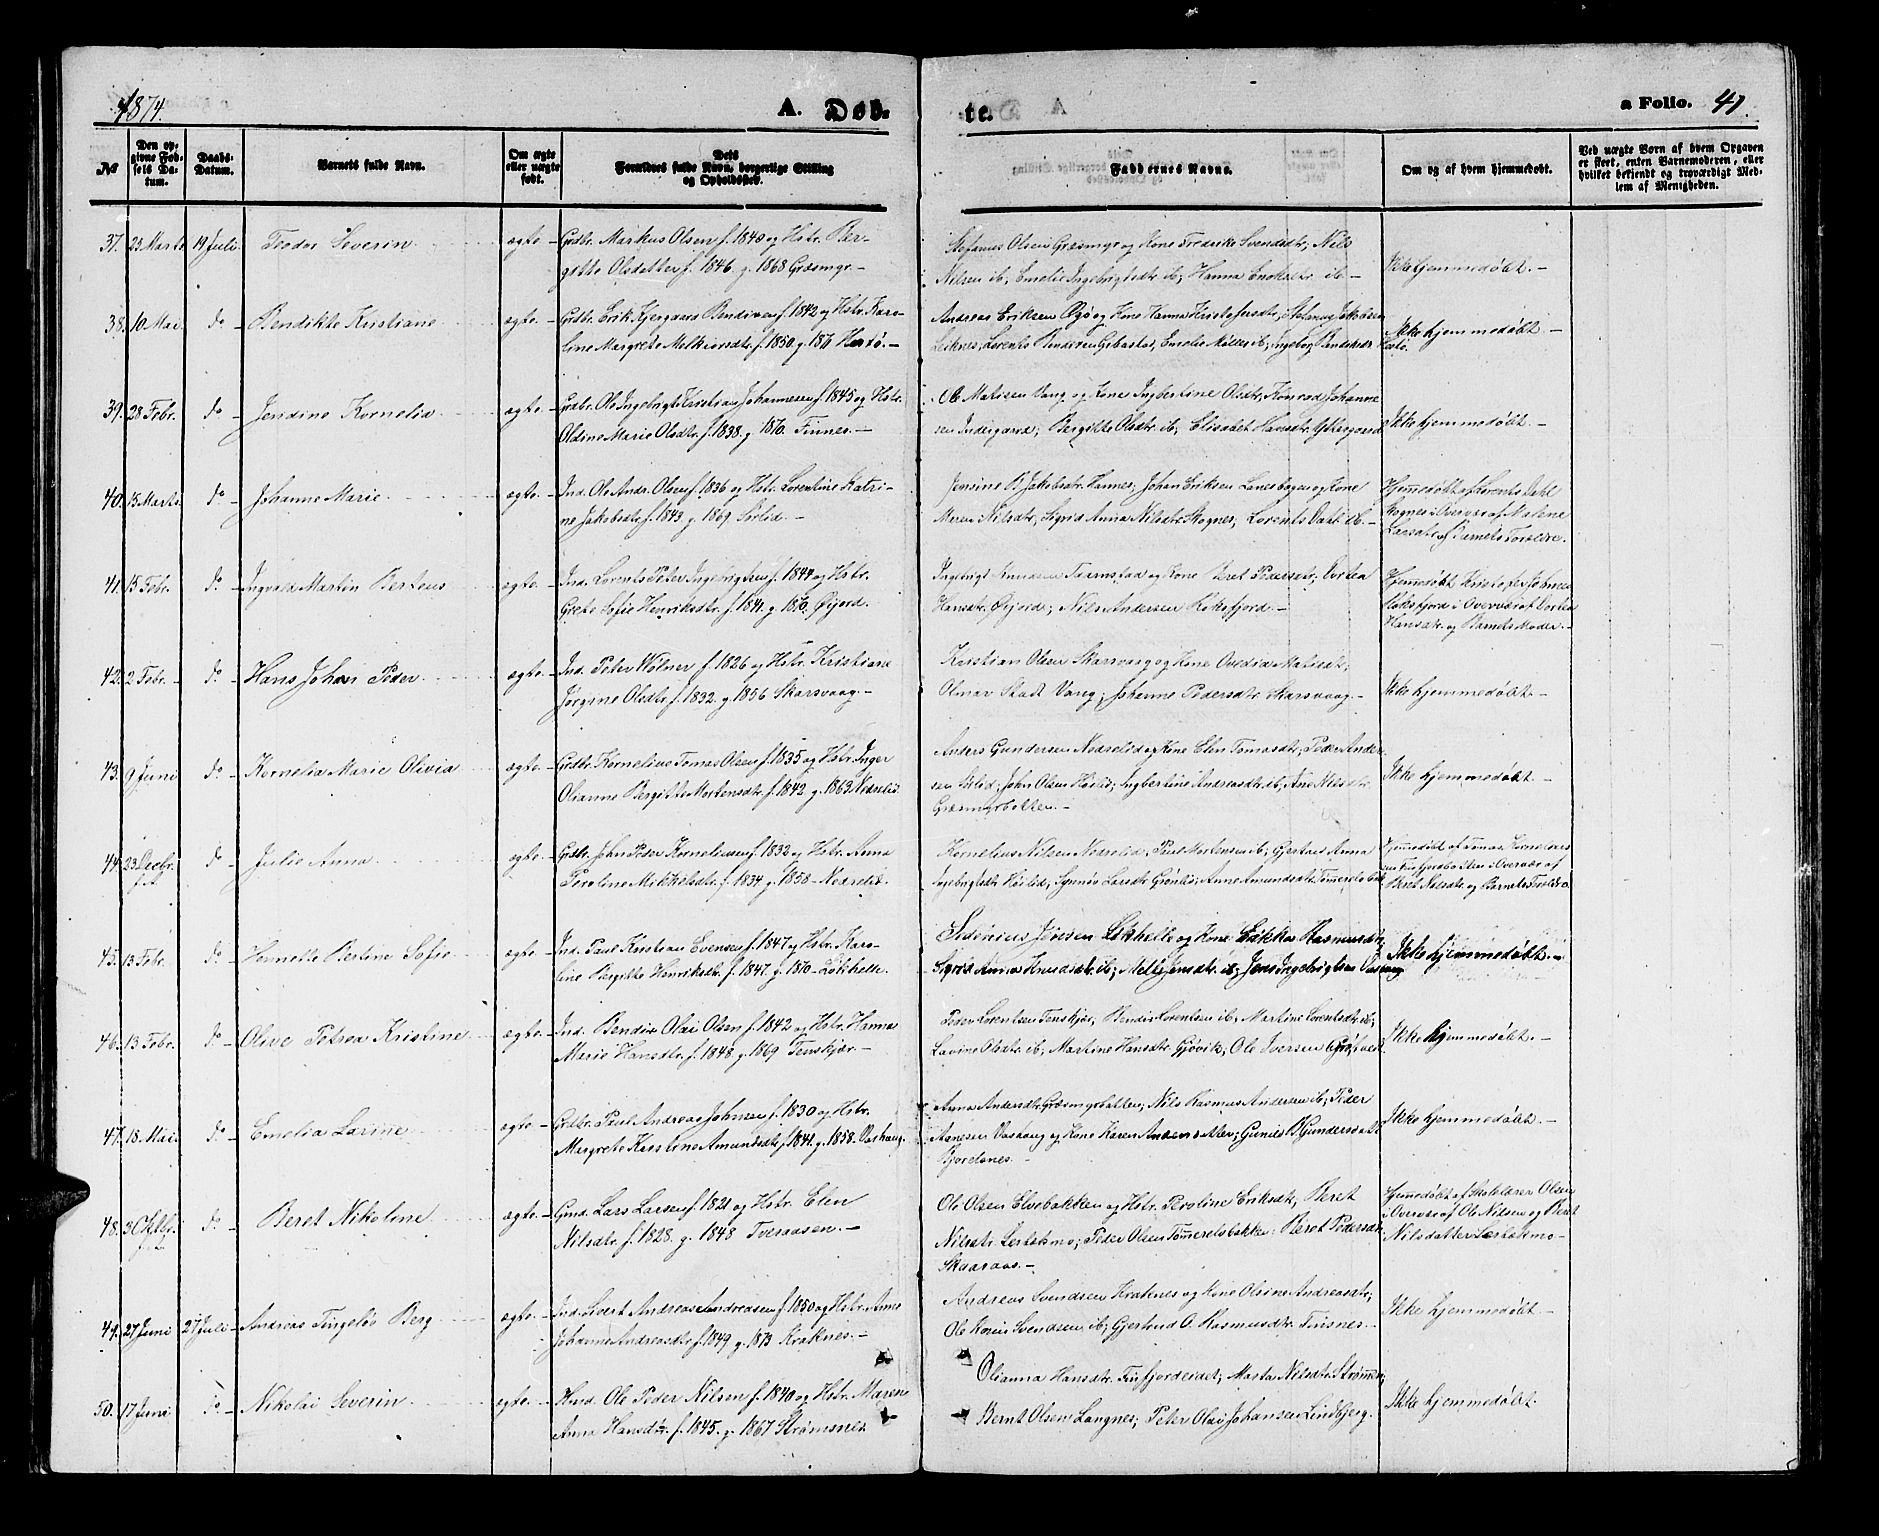 1874.
A. Døb-
te.
a Folio. 41.
No
Den op-
givne Fød-
sels Da-
tum.
Daabs-
Datum.
Barnets fulde Navn.
Om ægte
eller uægte
født.
Dets
Forældres fulde Navn, borgerlige Stilling
og Opholdssted.
Faddernes Navne.
Om og af hvem hjemmedøbt.
Ved uægte Born af hvem Opgaven
er skeet, enten Barnemoderen, eller
hvilket bekjendt og troværdigt Med-
lem af Menigheden.
37. 23 Marts 19 Juli. Teodor Severin ægte. Grdbr. Markus Olsen f. 1840 og Hstr. Ber-
gitte Olsdatter f. 1846. g. 1868 Græsmyr.
Stefanus Olsen Græsmyr og Kone Fredrike Svendsdtr., Nils
Nilsen ib; Emelie Ingebrigtsdtr. ib; Hanna Enoksdtr. ib.
Ikke hjemmedøbt.
38. 10 Mai do Bendikte Kristiane ægte. Grdbr. Erik Kjergaard Bendixen f. 1842 og Hstr. Karo-
line Margrete Melkiorsdtr. f. 1850. g. 1871
Andreas Eriksen og Kone Hanna Kristofersdtr.,
Lorents Bendixen Gibostad, Emelie Møller ib;
Ikke hjemmedøbt.
39. 28 Febr. do Jendine Kornelia ægte. Grdbr. Ole Ingebrigt Kristian Johannesen f. 1845 og Hstr.
Oldine Marie Olsdtr. f. 1838. g. 1870. Finnes.
Ole Matisen Vang og Kone Ingbertine Olsdtr; Konrad Johanne-
sen Indergaard; Bergitte Olsdtr. ib; Elisabet Hansdtr. Yttergaard
Ikke hjemmedøbt.
40. 15 Marts do Johanne Marie ægte. Ind. Ole Andr. Olsen f. 1836 og Hstr. Lorentine Katri-
ne Jakobsdtr. f. 1843. g. 1869 Sørlid.
Jensine B. Jakobsdtr. Hannes; Johan Eriksen Lanesbogen og Kone
Maren Nilsdtr., Sigrid Anna Nilsdtr. Skognes; Lorents Dahl ib.
Hjemmedøbt af Lorents Dahl
Skognes i Overvær af Malene
Larsdtr. og Barnets Forældre.
41. 15 Febr. do Ingvald Martin Berteus ægte. Ind. Lorents Peter Ingebrigtsen f. 1844 og Hstr.
Grete Sofie Henriksdtr. f. 1841. g. 1870. Øijord.
Ingebrigt Amundsen og Kone Beret Pedersdtr; Dortea
Hansdtr. Øijord; Nils Andersen Roksfjord.
Hjemmedøbt Kristofer Johnsen
Roksfjord i Overvær af Dortea
Hansdtr. og Barnets Moder.
42. 2 Febr. do Hans Johan Peder ægte. Ind. Peter Wølner f. 1826 og Hstr. Kristiane
Jørgine Olsdtr. f. 1832. g. 1856 Skarsvaag.
Kristian Olsen Skarsvaag og Kone Ovedia Matisdtr;
Olmar Stad Vang; Johanne Pedersdtr. Skarsvaag.
Ikke hjemmedøbt.
43. 9 Juni do Kornelia Marie Olivia ægte. Grdbr. Kornelius Tomas Olsen f. 1835 og Hstr. Inger
Olianne Bergitte Mortensdtr. f. 1842. g. 1863. Nedrelid.
Anders Gundersen Nedrelid og Kone Elen Tomasdtr; Peder Ander-
sen Sørlid; John Olsen Høslid; Ingbertine Andreasdtr. ib; Ane Nilsdtr.
Græsmyrbotten.
Ikke hjemmedøbt.
44. 23 Decbr. do Julie Anna ægte. Grdbr. John Peder Korneliusen f. 1832 og Hstr. Anna
Peroline Mikkelsdtr. f. 1834 g. 1858 Nedrelid.
Kornelius Nilsen Nedrelid, Paul Mortensen ib; Gjertrud Anna
Ingebrigtsdtr. Høslid; Synnøv Larsdtr. Grønlid; Anne Amundsdtr. Tømmerelvbak.
Hjemmedøbt af Tomas Korneliu-
sen Fusfjordbotten i Overvær af
Beret Nilsdtr. og Barnets Forældre
45. 13 Febr. do Hennette Bertine Sofie ægte. Ind. Paul Kristian Evensen f. 1847 og Hstr. Karo-
line Bergitte Henriksdtr. f. 1847. g. 1870. Løkhelle.
Sedenius Jensen Løkhelle og Kone Rasmusdtr.
Sigrid Anna Knudsdtr. ib; Mette Jensdtr. ib; Jens Ingebrigtsen Vashaug
Ikke hjemmedøbt.
46. 13 Febr. do Olive Petrea Kristine ægte. Ind. Bendix Olai Olsen f. 1842 og Hstr. Hanna
Marie Hansdtr. f. 1848. g. 1869 Tenskjær.
Peder Lorentsen Tenskjær; Bendix Lorentsen ib; Martine Lorentsdtr. ib;
Lavine Olsdtr. ib; Martine Hansdtr. Gjøvik; Ole Iversen
Ikke hjemmedøbt.
47. 18. Mai do Emelia Larine ægte. Grdbr. Paul Andreas Johnsen f. 1830 og Hstr.
Margrete Kirstine Amundsdtr. f. 1841. g. 1858. Vashaug.
Anna Andersdtr. Græsmyrbotten; Nils Rasmus Andersen ib; Peder
Arnesen Vashaug og Kone Karen Andersdatter; Gunild B. Gundersdtr.
Bjordanes.
Ikke hjemmedøbt.
48. 3 Oktbr. do Beret Nikoline ægte. Gmd. Lars Larsen f. 1821 og Hstr. Elen
Nilsdtr. f. 1828. g. 1848 Tveraasen.
Ole Olsen Elvebakken og Hstr. Peroline Eriksdtr., Beret
Nilsdtr. Leirbakmo; Peder Olsen Tømmerelvbakken. Beret Pedersdtr.
Skaaraas.
Hjemmedøbt af Skolelærer Olsen
i Overvær af Ole Nilsen og Beret
Nilsdatter Leirbakmo
49. 27 Juni 27 Juli Andreas Tingeløv Berg ægte. Ind. Sivert Andreas Andreasen f. 1850 og Hstr. Anne
Johanne Andreasdtr. f. 1849 g. 1873 Kraknes.
Andreas Svendsen Kraknes og Kone Olsine Andreasdtr;
Ole Korin Svendsen ib; Gjertrud O. Rasmusdtr. Trisnes.
Ikke hjemmedøbt.
50. 17 Juni do Nikolai Severin ægte. Hmd. Ole Peder Nilsen f. 1840 og Hstr. Maren
Anna Hansdtr. f. 1845. g. 1867 Strømsnes
Olianna Hansdtr. Fusfjordeidet; Marta Nilsdtr. Strømmen;
Bernt Olsen Langnes; Peter Olai Johansen Lindbjerg.
Ikke hjemmedøbt.